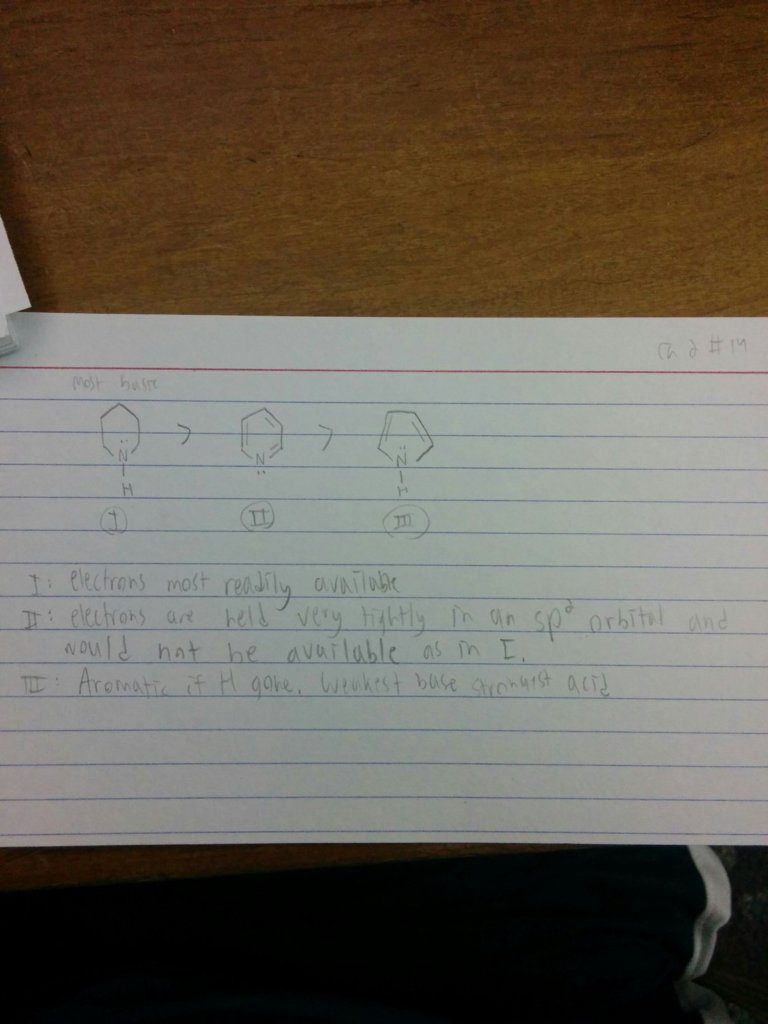 Ch 2 #14
most basic
> >
N N N
H H
I II III
I: electrons most readily available
II: electrons are held very tightly in an sp² orbital and
would not be available as in I.
III: Aromatic if H gone. Weakest base strongest acid